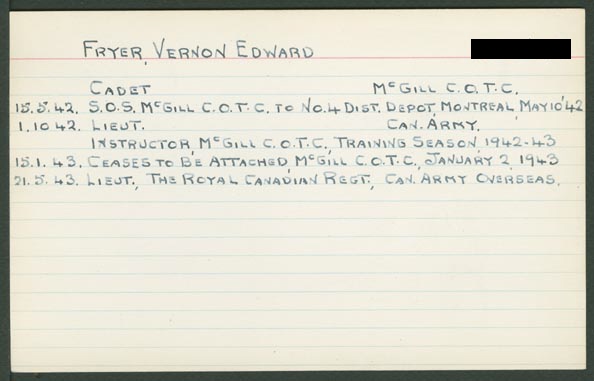 FRYER, VERNON EDWARD
CADET McGILL C.O.T.C.
15.5.42. S.O.S. McGILL C.O.T.C. TO NO.4 DIST. DEPOT, MONTREAL, MAY 10'42
1.10 42. LIEUT. CAN. ARMY.
INSTRUCTOR, McGILL C.O.T.C., TRAINING SEASON 1942-43
15.1. 43. CEASES TO BE ATTACHED, McGILL C.O.T.C., JANUARY 2, 1943
21.5. 43. LIEUT., THE ROYAL CANADIAN REGT., CAN. ARMY OVERSEAS.